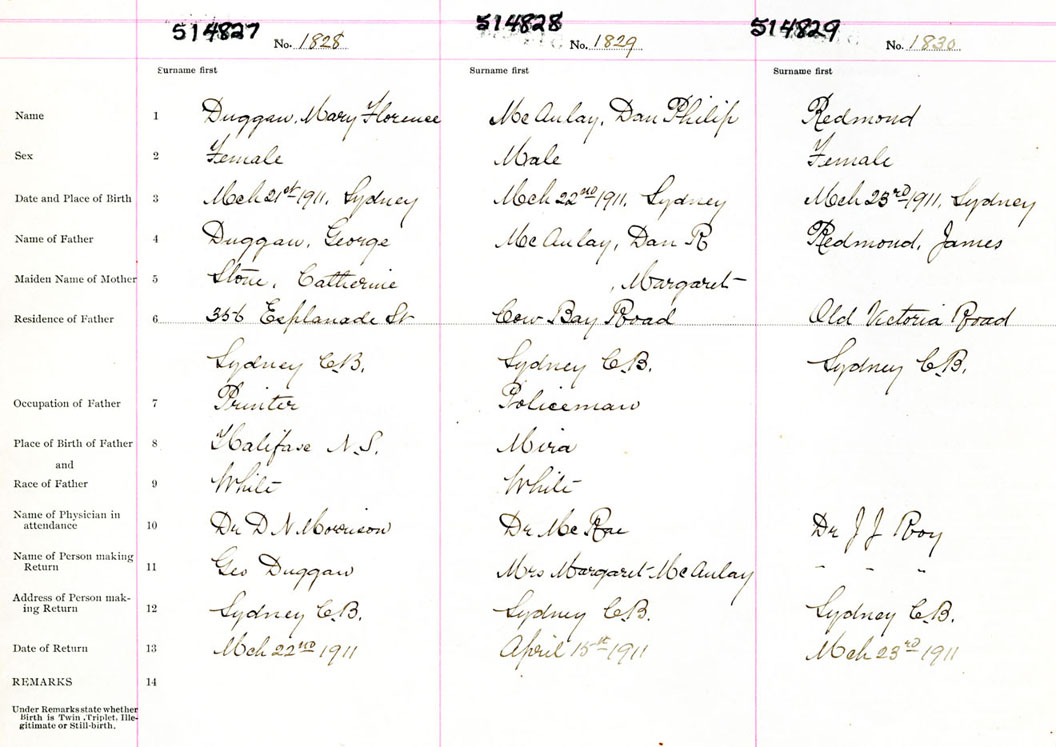 514827 514828 514829
No. 1828 No. 1829 No. 1830
Surname first Surname first Surname first
Name 1 Duggan, Mary Florence McAulay, Dan Philip Redmond
Sex 2 Female Male Female
Date and Place of Birth 3 Mch 21st 1911, Sydney Mch 22nd 1911, Sydney Mch 23rd 1911, Sydney
Name of Father 4 Duggan, George McAulay, Dan R Redmond, James
Maiden Name of Mother 5 Stone, Catherine , Margaret
Residence of Father 6 356 Esplanade St Cow Bay Road Old Victoria Road
Sydney C.B. Sydney C.B. Sydney C.B.
Occupation of Father 7 Printer Policeman
Place of Birth of Father 8 Halifax N.S. Mira
and
Race of Father 9 White White
Name of Physician in
attendance 10 Dr D N Morrison Dr McRae Dr J J Roy
Name of Person making
Return 11 Geo Duggan Mrs Margaret McAulay " " "
Address of Person mak-
ing Return 12 Sydney C.B. Sydney C.B. Sydney C.B.
Date of Return 13 Mch 22nd 1911 April 15st 1911 Mch 23rd 1911
REMARKS 14
Under Remarks state whether
Birth is Twin, Triplet, Ille-
gitimate or Still-birth.